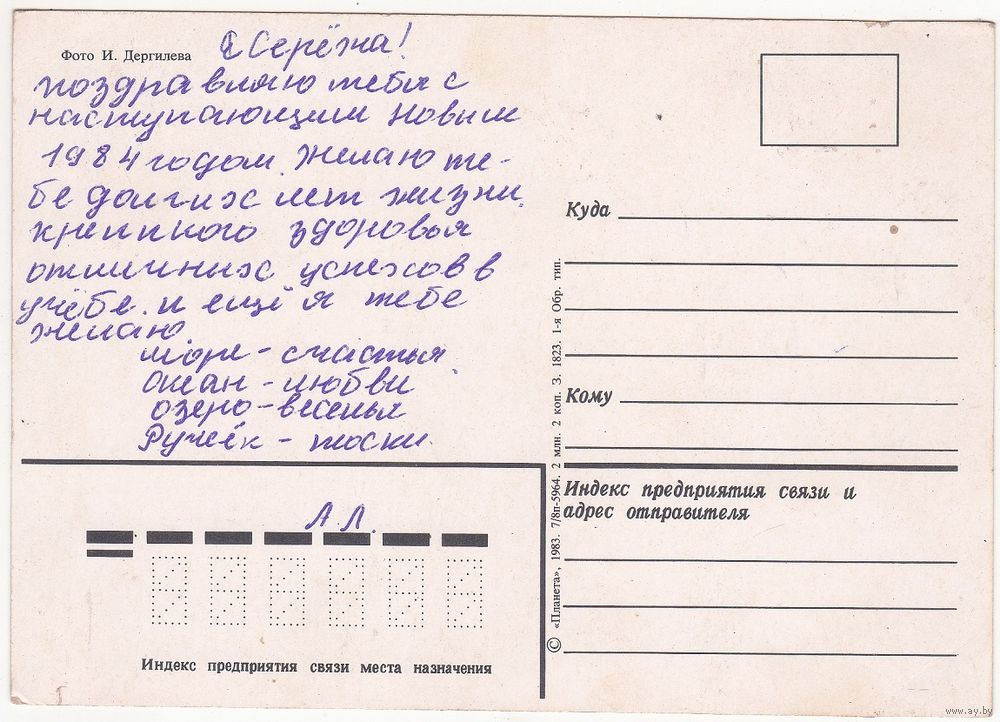 Фото И. Дергилева
Серёжа!
поздравляю тебя с
наступающим новым
1984 годом. Желаю те-
бе долгих лет жизни,
крепкого здоровья
отличних успехов в
учёбе. и ещё я тебе
желаю.
море - счастья
океан - любви
озеро - веселья
Ручёк - тоски.
А Л.
Индекс предприятия связи места назначения
© «Планета», 1983. 7/8п-5964. 2 млн. 2 коп. З. 1823. 1-я Обр. тип.
Куда
Кому
Индекс предприятия связи и
адрес отправителя
www.ay.by